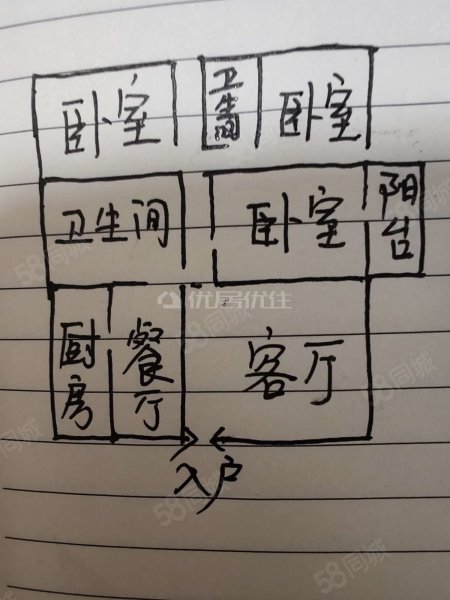 卧室
卫生间
卧室
卫生间
卧室
阳台
优居优住
厨房
餐厅
客厅
入户
58同城
58同城
58同城
58同城